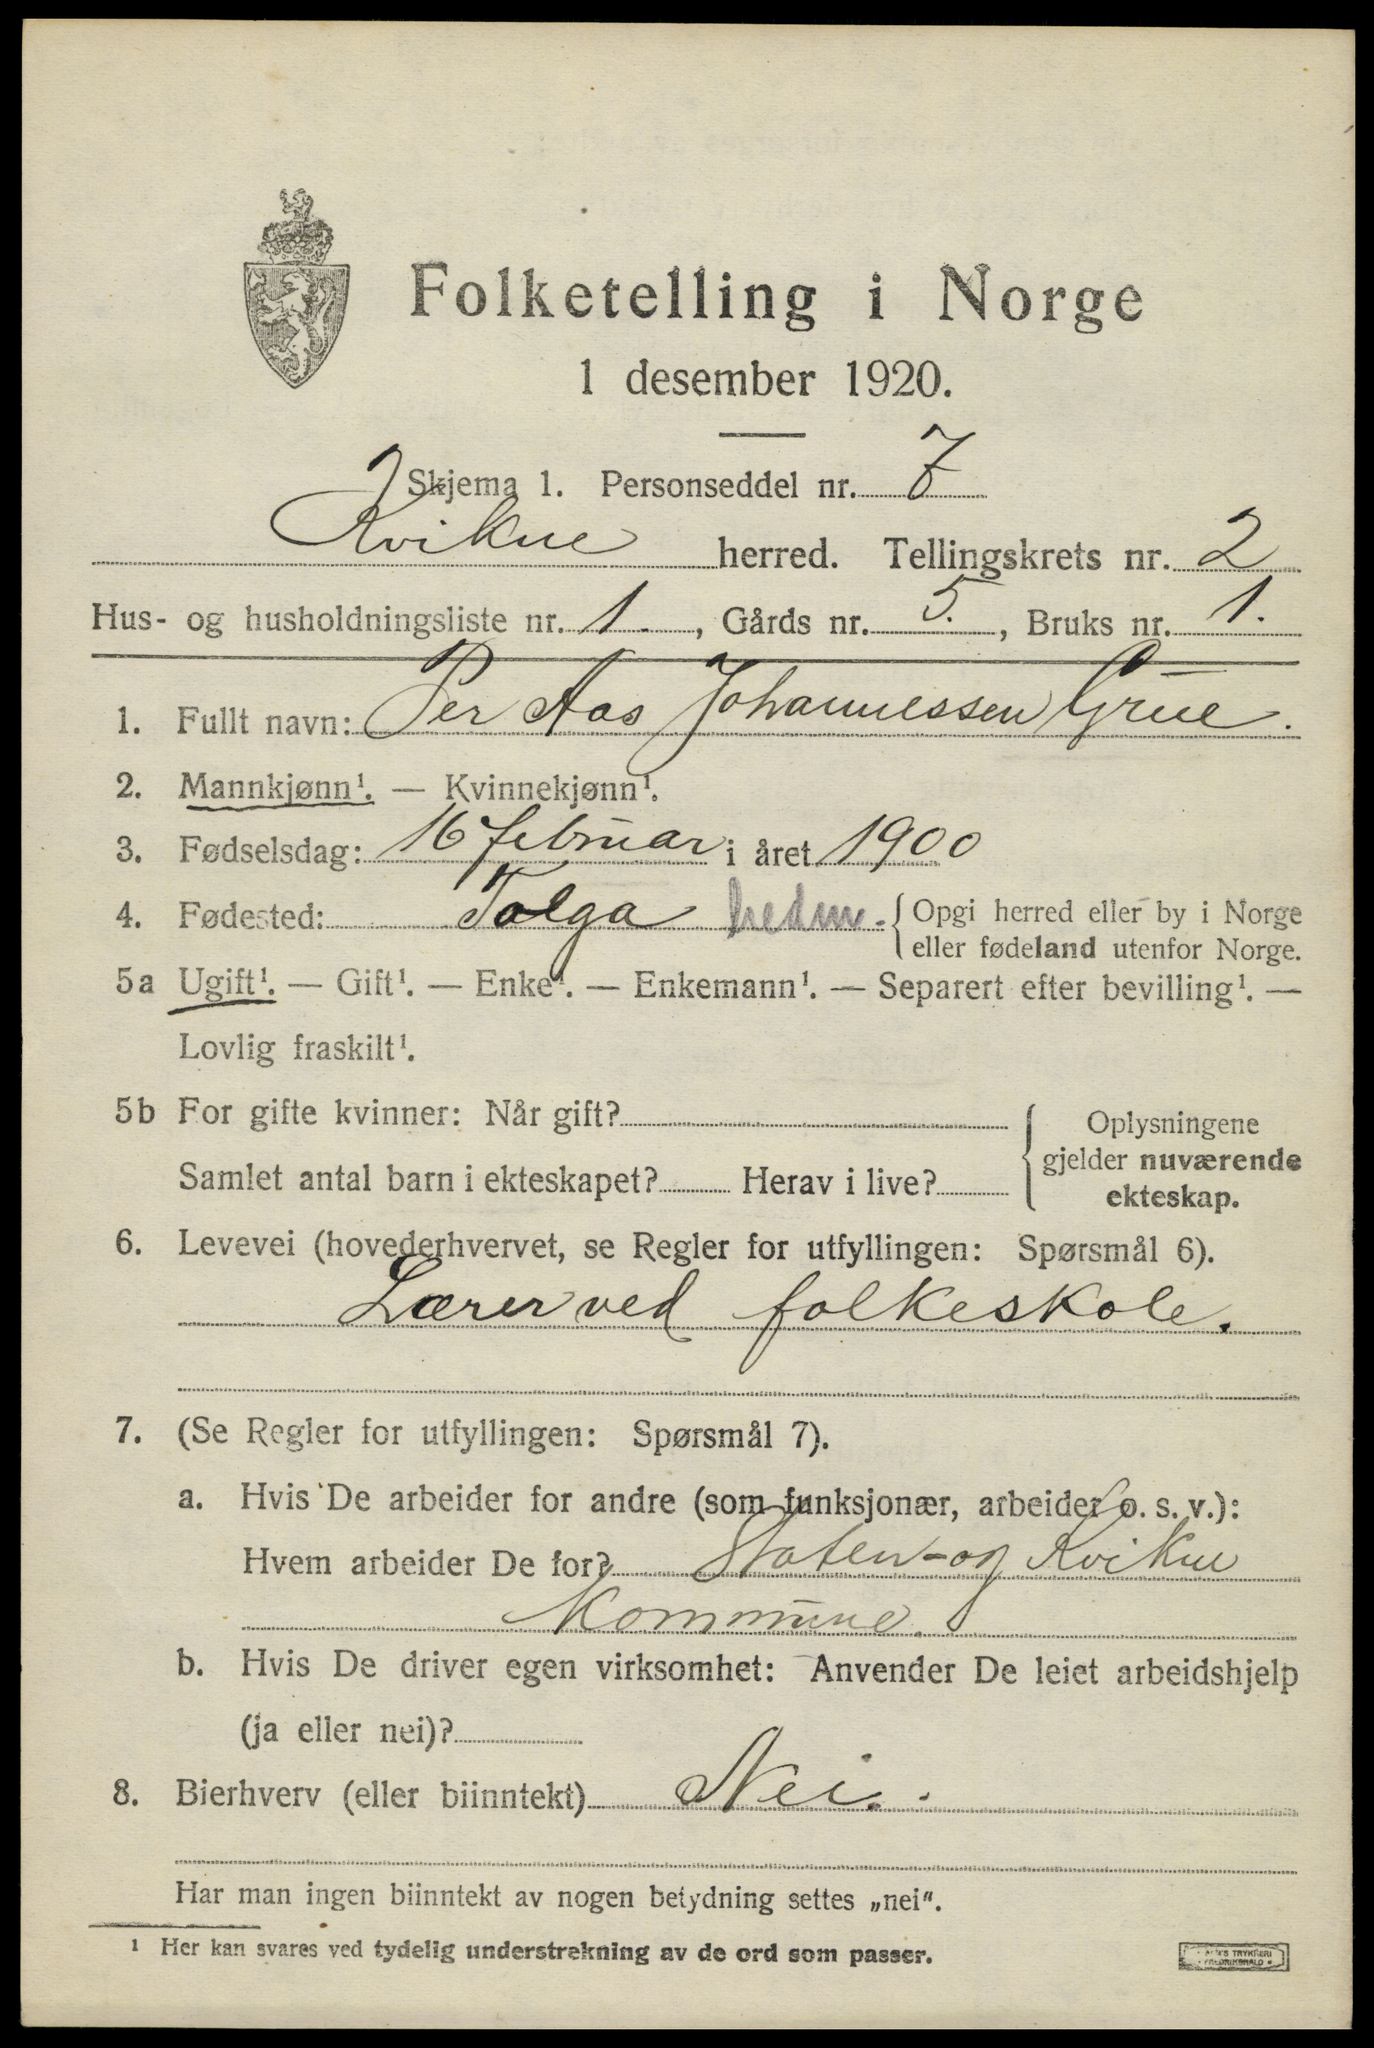 Folketelling i Norge
1 desember 1920.
Skjema 1. Personseddel nr. 7
Kvikne herred. Tellingskrets nr. 2
Hus- og husholdningsliste nr. 1., Gårds nr. 5., Bruks nr. 1.
1. Fullt navn: Per Aas Johannessen Grue.
2. Mannkjønn¹. — Kvinnekjønn¹.
3. Fødselsdag: 16 februar i året 1900
4. Fødested: Tolga hedm. { Opgi herred eller by i Norge
eller fødeland utenfor Norge.
5a Ugift¹. — Gift¹. — Enke¹. — Enkemann¹. — Separert efter bevilling¹. —
Lovlig fraskilt¹.
5b For gifte kvinner: Når gift?
Samlet antal barn i ekteskapet? Herav i live?
{ Oplysningene
gjelder nuværende
ekteskap.
6. Levevei (hovederhvervet, se Regler for utfyllingen: Spørsmål 6).
Lærer ved folkeskole.
7. (Se Regler for utfyllingen: Spørsmål 7).
a. Hvis De arbeider for andre (som funksjonær, arbeider o. s. v.):
Hvem arbeider De for? Staten - og Kvikne
kommune.
b. Hvis De driver egen virksomhet: Anvender De leiet arbeidshjelp
(ja eller nei)?
8. Bierhverv (eller biinntekt) Nei.
Har man ingen biinntekt av nogen betydning settes „nei".
¹ Her kan svares ved tydelig understrekning av de ord som passer.
TRYKKERI
FREDRIKSHALD